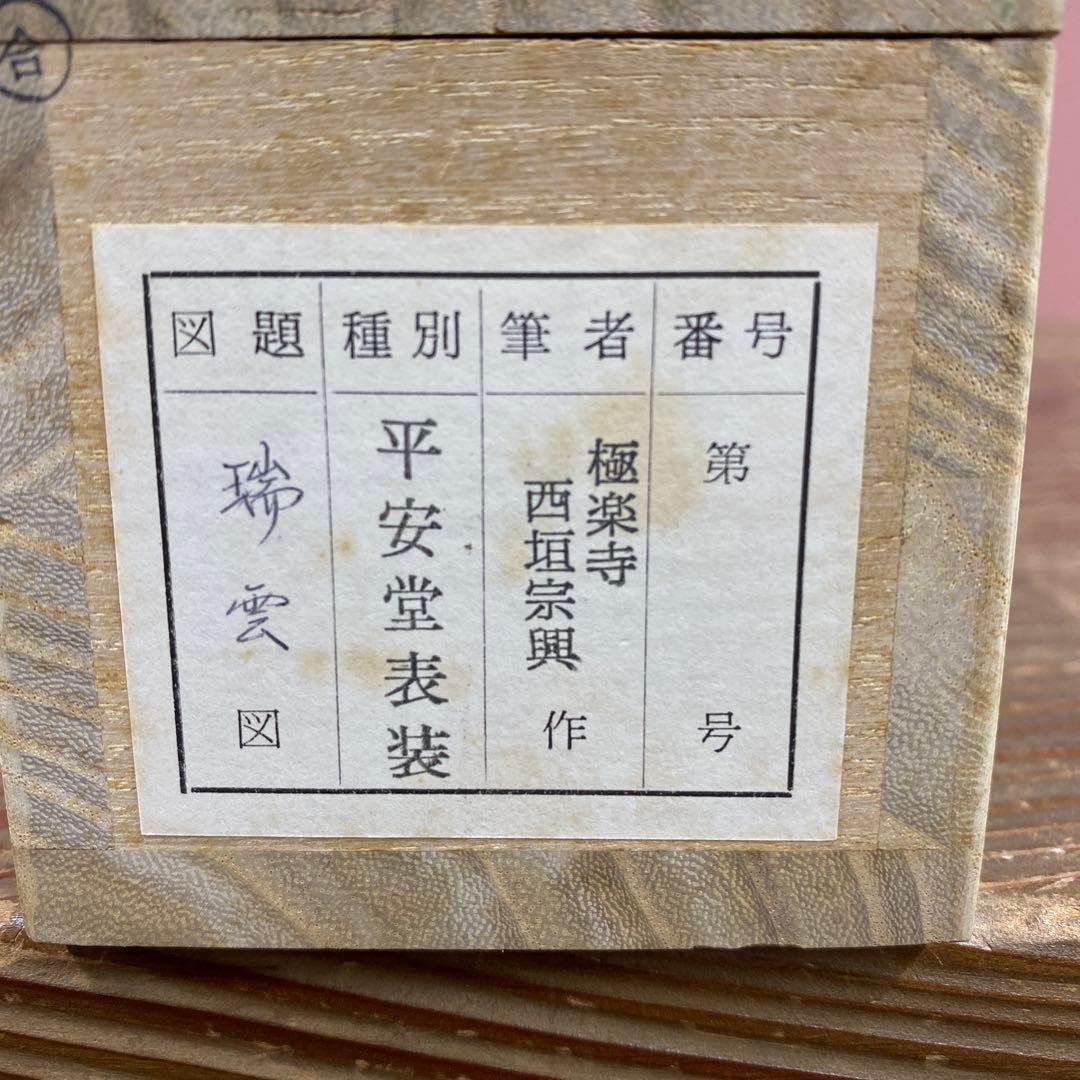 合
番号
第
号
筆者
極楽寺
西垣宗興
作
種別
平安堂表装
図題
瑞雲
図